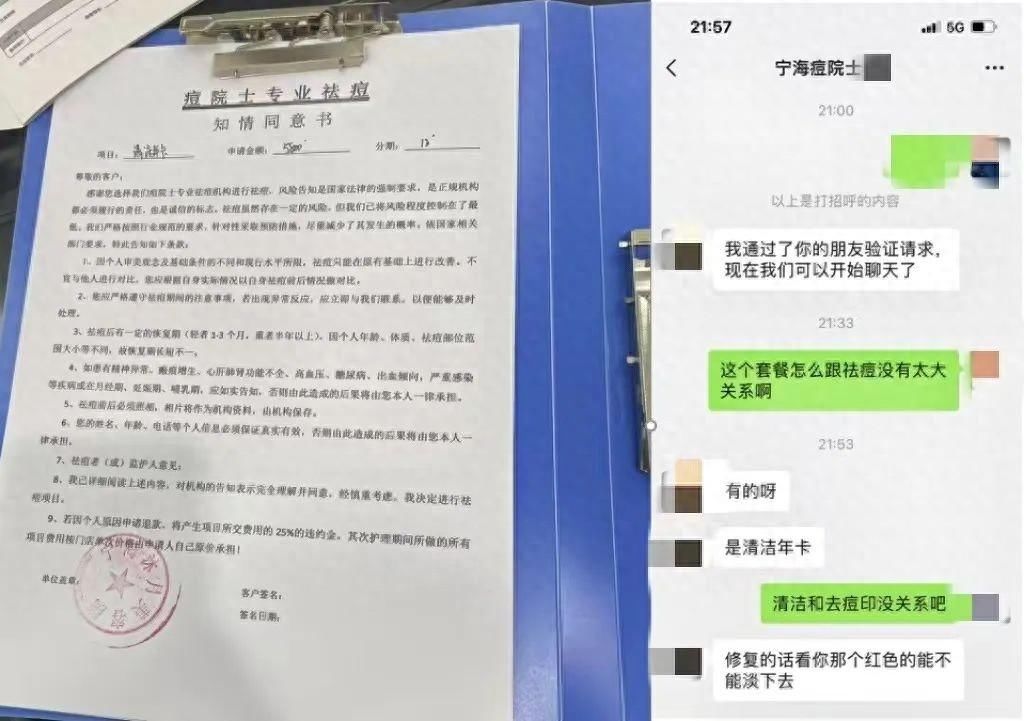 痘院士专业祛痘
知情同意书
项目：
申请金额：
分期：
尊敬的客户：
感谢您选择我们痘院士专业祛痘机构进行祛痘，风险告知是国家法律的强制要求，是正规机构
都必须履行的责任，也是诚信的标志。祛痘虽然存在一定的风险，但我们已将风险程度控制在了最
低。我们严格按照行业规范的要求，针对性采取预防措施，尽能减少了其发生的概率。依国家相关
部门要求，特此告知如下条款：
1、因个人审美观念及基础条件的不同和现行水平所限，祛痘只能在原有基础上进行改善。不
宜与他人进行对比，您应根据自身实际情况以自身祛痘前后情况做对比。
2、您应严格遵守祛痘期间的注意事项，若出现异常反应，应立即与我们联系。以便能够及时
处理。
3、祛痘后有一定的恢复期（轻者1-3个月，重者半年以上）。因个人年龄、体质、祛痘部位范
围大小等不同，故恢复期长短不一。
4、如患有精神异常、瘢痕增生、心肝肺肾功能不全、高血压、糖尿病、出血倾向，严重感染
等疾病或在月经期、妊娠期、哺乳期，应如实告知，否则由此造成的后果将由您本人一律承担。
5、祛痘前后必须照相，相片将作为机构资料，由机构保存。
6、您的姓名、年龄、电话等个人信息必须保证真实有效，否则由此造成的后果将由您本人一
律承担。
7、祛痘者（或）监护人意见：
8、我已详细阅读上述内容，对机构的告知表示完全理解并同意，经慎重考虑。我决定进行祛
痘项目。
9、若因个人原因申请退款，将产生项目所交费用的25%的违约金。其次护理期间所做的所有
项目费用按门店单次价格由申请人自己原价承担！
单位盖章：
客户签名：
签名日期：
21:57
5G
宁海痘院士
21:00
以上是打招呼的内容
我通过了你的朋友验证请求，
现在我们可以开始聊天了
21:33
这个套餐怎么跟祛痘没有太大
关系啊
21:53
有的呀
是清洁年卡
清洁和去痘印没关系吧
修复的话看你那个红色的能不
能淡下去